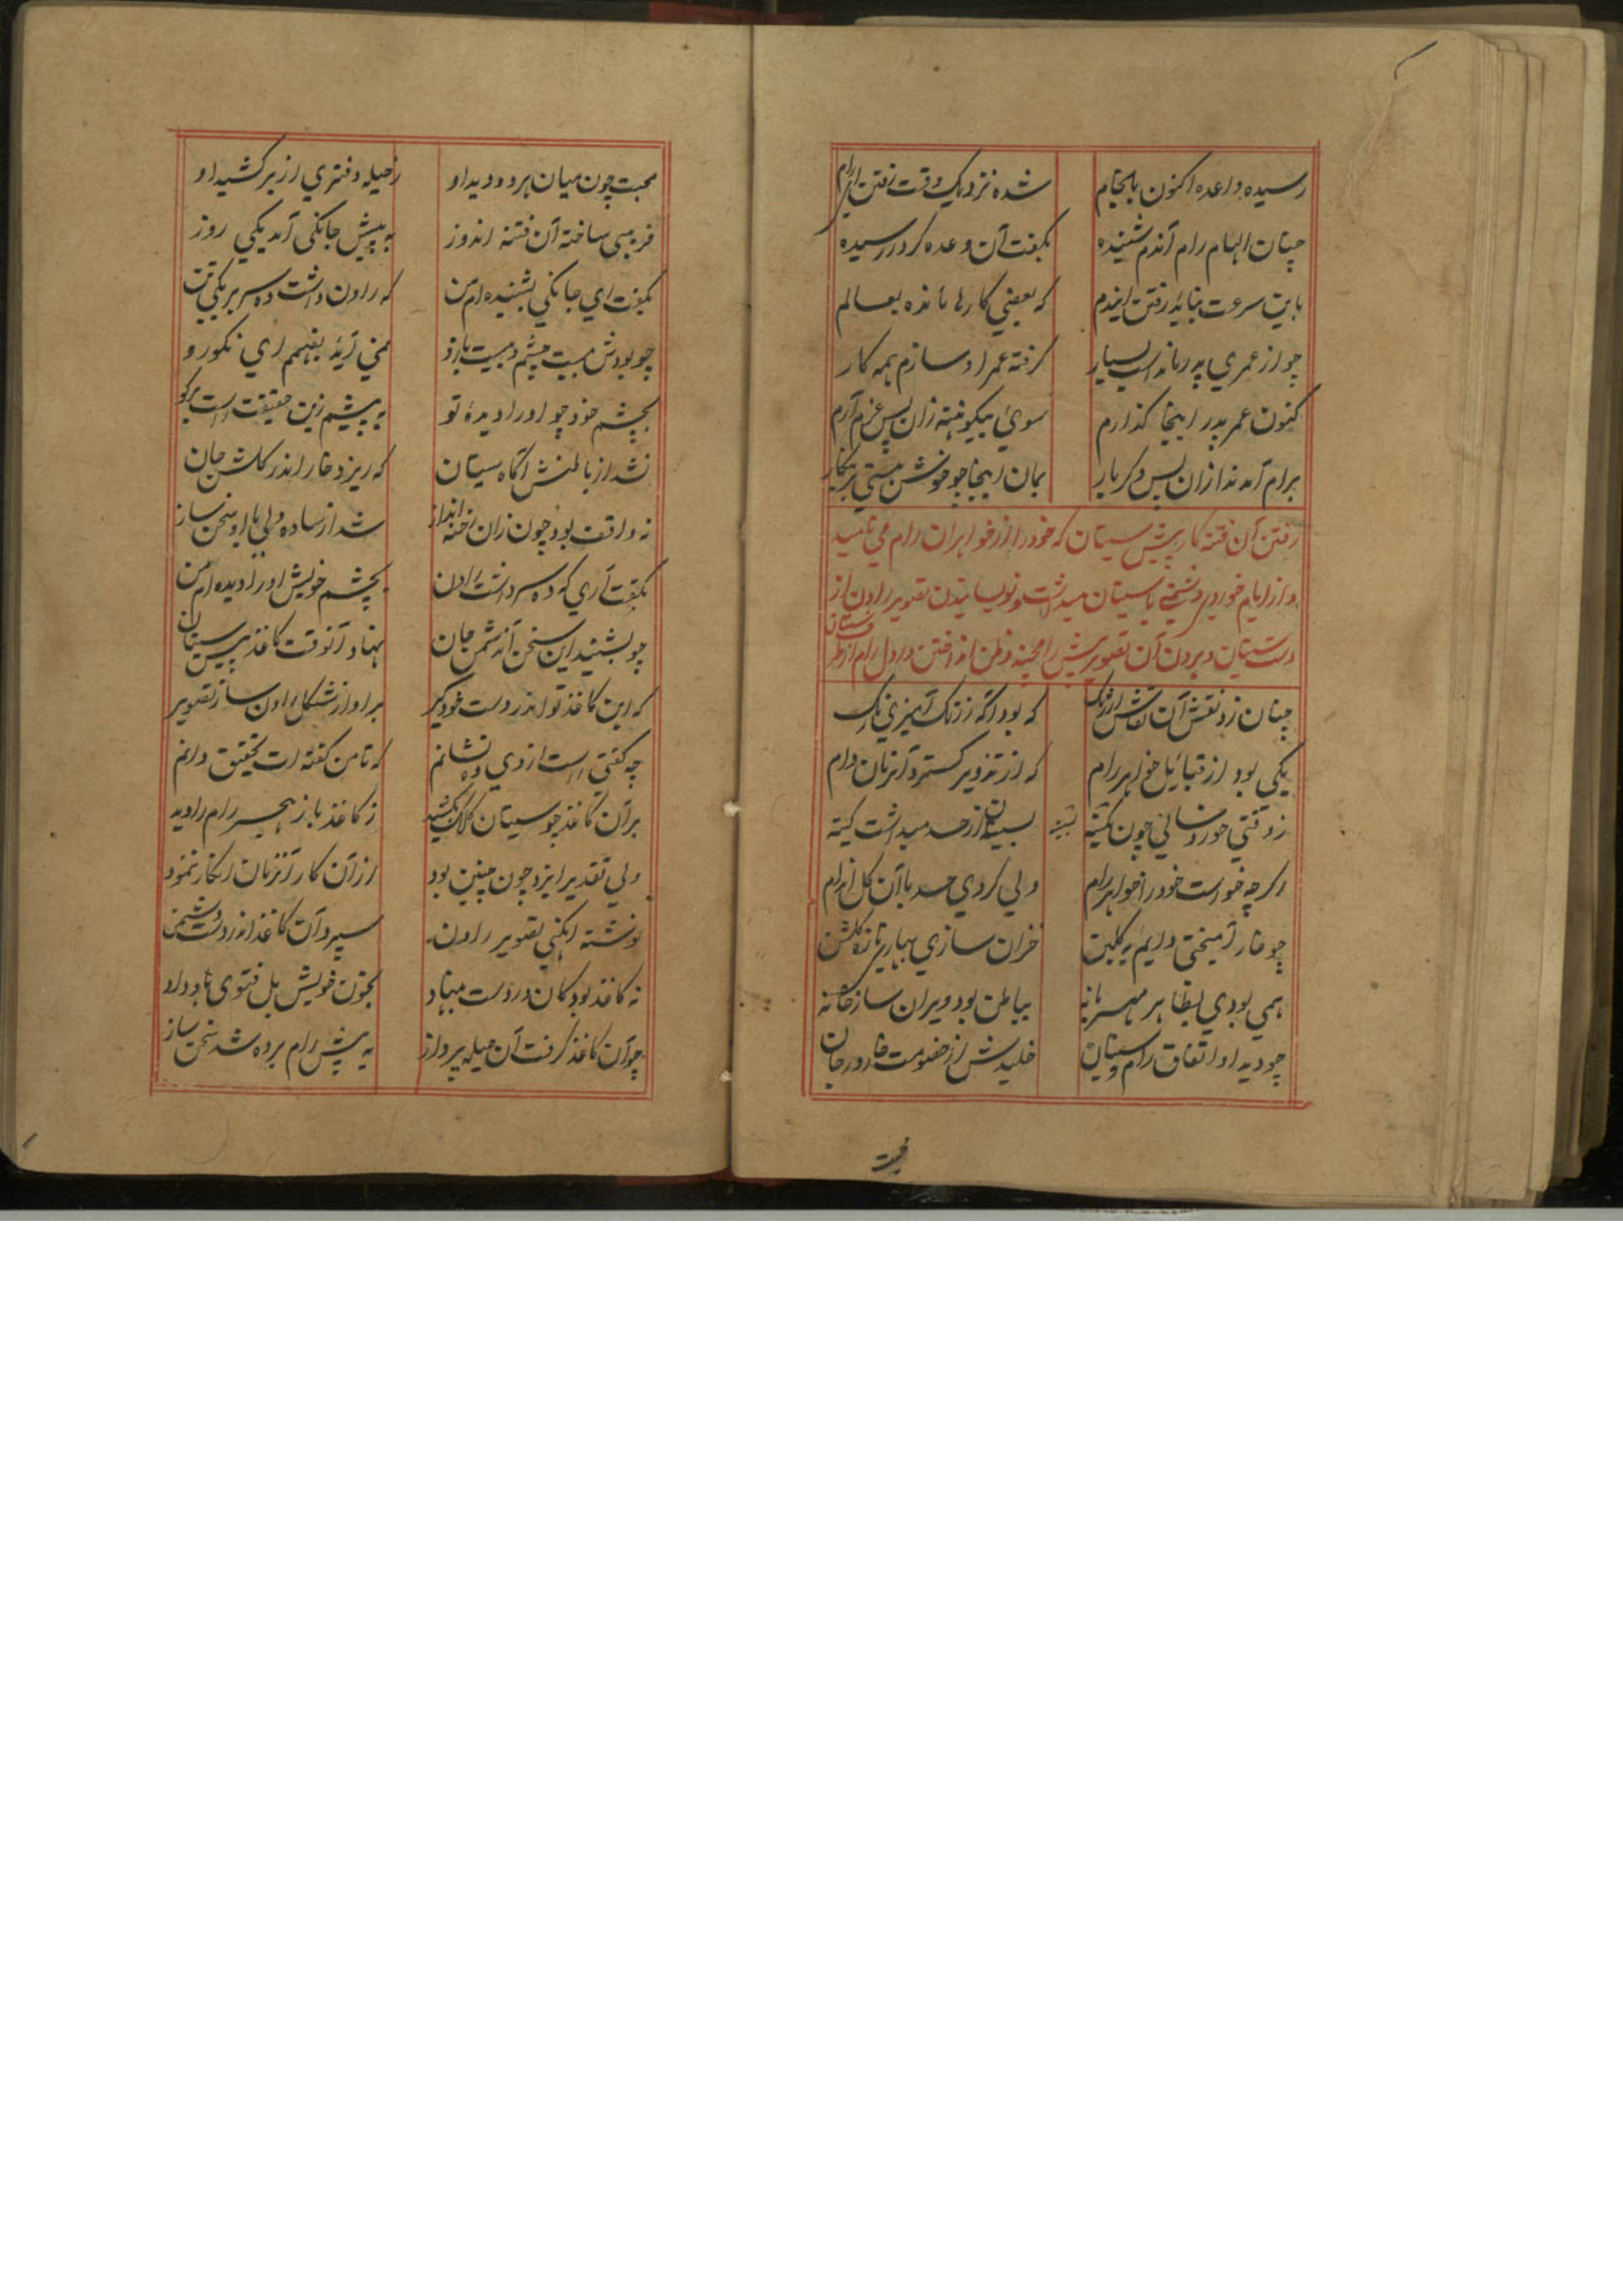 رسیده واعده اکنون بانجام شده نزدیک وقت رفتن ای رام
چنان الهام رام آندم شنیده بگفت آن وعده کردر رسیده
باین سرعت نباید رفتن ایندم که بعضی کارها مانده بعالم
چو از عمری پدر ماند است بسیار گرفته عمر او سازم همه کار
کنون عمر پدر اینجا گذارم سوی بیکونته زان پس عزم آرم
برام آمد ندا زان پس دگر بار بمان اینجا چو خوش هستی
رفتن آن فتنه کار پیش سیتان که خود را از خواهران رام می نامید
و از ایام خوردی دشمنی با سیتان میداشت و نویسانیدن تصویر راون از
دست سیتان و بردن آن تصویر پیش رامچند و ظن انداختن در دل رام از طرف سیتان
چنان زد نقش آن نقاش ارژنگ که بود آگه ز رنگ آمیزی رنگ
یکی بود از قبائیل خواهر رام که از تزویر گسترد آنزمان دام
ز وقتی خورد سالی چون بسیتان از حسد میداشت کینه
اگرچه خواست خود را خواهر رام ولی کردی حسد با آن گل اندام
چو خار آمیختی دایم به گلبن خزان سازی بهار تازه گلشن
همی بودی بظاهر مهربانه بباطن بود ویران ساز خانه
چو دید او اتفاق رام و سیتان خلیدش از خصومت خار در جان
محبت چون میان هر دو دید او ز حیله دفتری از بر کشید او
فریبی ساخته آن فتنه اندوز به پیش جانکی آمد یکی روز
بگفت ای جانکی بشنیده ام من که راون داشت ده سر بر یکی تن
چو بودش بیست چشم و بیست بازو نمی آید بفهمم ای نکورو
بچشم خود چو او را دیده تو به پیشم زین حقیقت راست برگو
نشد از باطنش آگاه سیتان که ریزد خار اندر گلشن جان
نه واقف بود چون زان رخنه انداز شد از ساده دلی با او سخن ساز
بگفت آری که ده سر داشت راون بچشم خویش او را دیده ام من
چو بشنید این سخن آن دشمن جان نهاد آنوقت کاغذ پیش سیتان
که این کاغذ تو اندر دست خود گیر بر او از شکل راون ساز تصویر
چه گفتی راست از وی ده نشانم که تا من گفته ات تحقیق دانم
بر آن کاغذ چو سیتان کلک بکشید ز کاغذ باز هجر رام را دید
ولی تقدیر ایزد چون چنین بود از آن کار آنزمان انکار ننمود
نوشته تصویر راون سپرد آن کاغذ اندر دست دشمن
نه کاغذ بود کان در دست بنهاد بخون خویش بل فتوی
چو آن کاغذ گرفت آن حیله پرداز به پیش رام برده شد سخن ساز
محبت